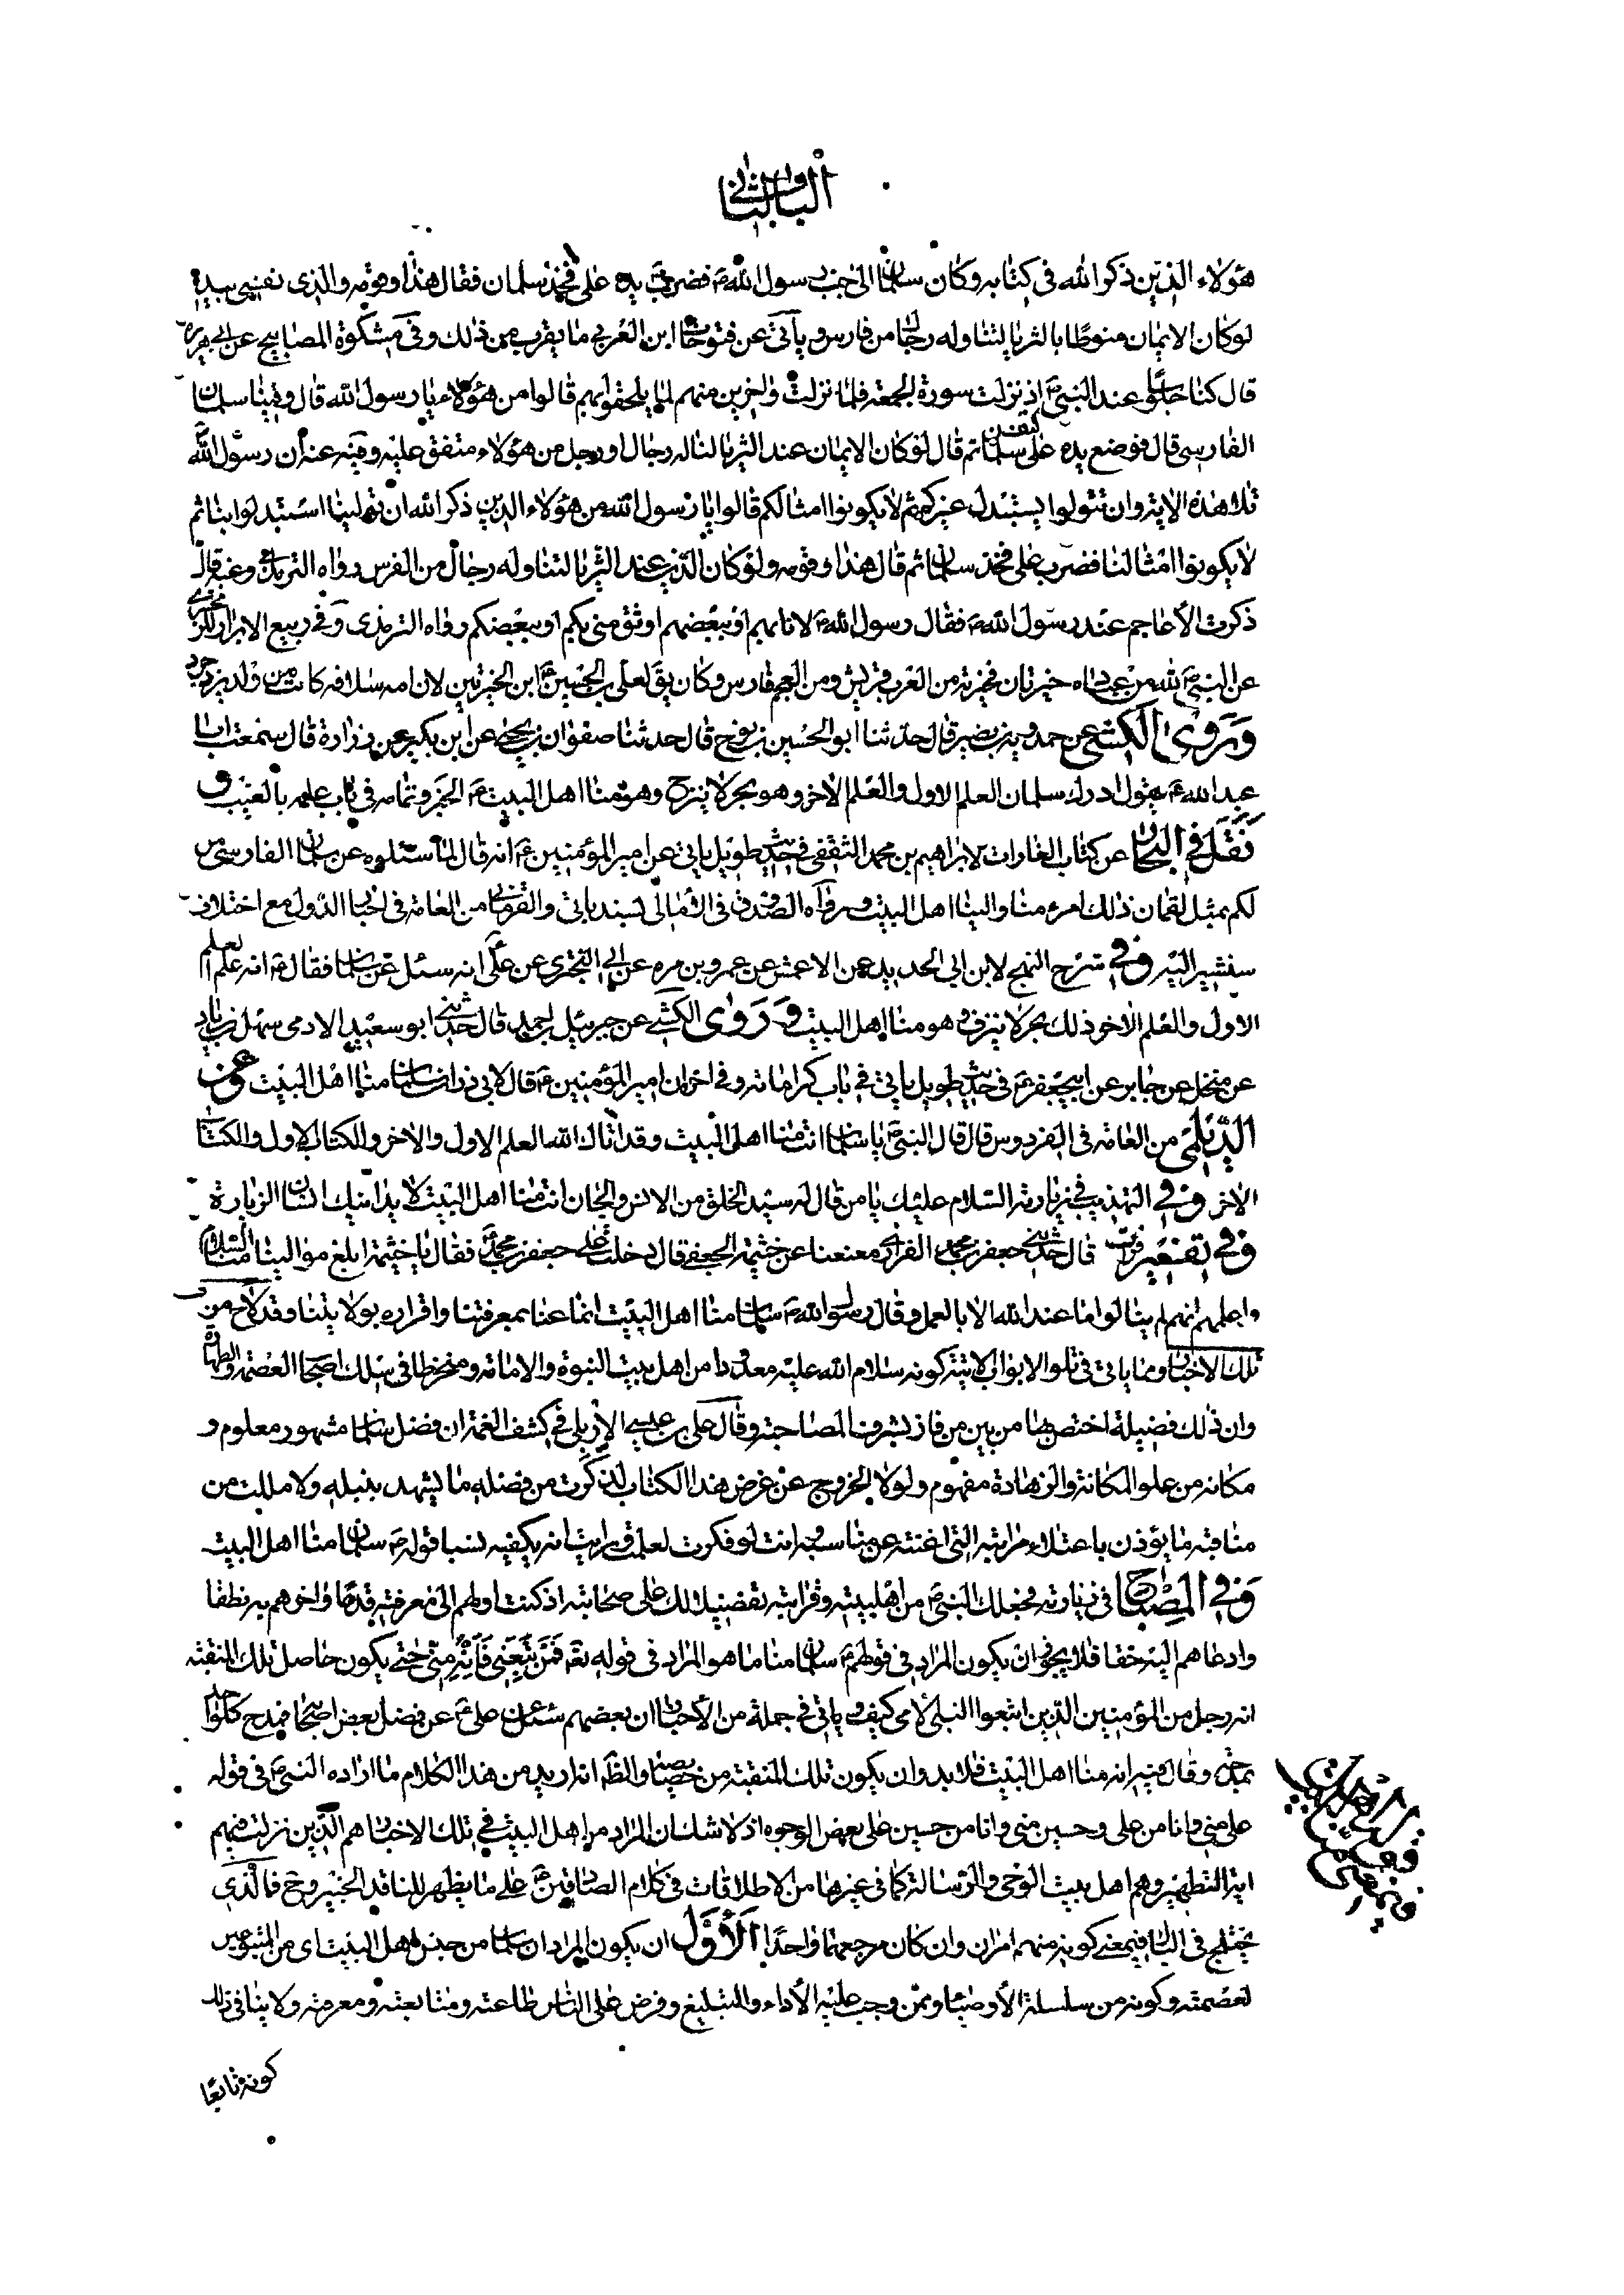 الباب الثاني
هؤلاء الذين ذكر الله في كتابه وكان سلمان الى جنب رسول الله ص فضرب ص يده على فخذ سلمان فقال هذا وقومه والذي نفسي بيده
لو كان الايمان منوطا بالثريا لتناوله رجال من فارس ويأتي عن فتوحات ابن العربي ما يقرب من ذلك وفي مشكوة المصابيح عن ابي هريره
قال كنا جلوسا عند النبي ص اذ نزلت سورة الجمعة فلما نزلت واخرين منهم لما يلحقوا بهم قالوا من هؤلاء يا رسول الله قال وفينا سلمان
الفارسي قال فوضع يده على سلمان ثم قال لو كان الايمان عند الثريا لناله رجال او رجل من هؤلاء متفق عليه وفيه عنه ان رسول الله
تلا هذه الاية وان تتولوا يستبدل غيركم ثم لا يكونوا امثالكم قالوا يا رسول الله من هؤلاء الذين ذكر الله ان تولينا استبدلوا بنا ثم
لا يكونوا امثالنا فضرب على فخذ سلمان ثم قال هذا وقومه ولو كان الدين عند الثريا لتناوله رجال من الفرس رواه الترمذي وعنه قال
ذكرت الاعاجم عند رسول الله ص فقال رسول الله ص لانا بهم او ببعضهم اوثق مني بكم او ببعضكم رواه الترمذي وفي ربيع الابرار للزمخشري
عن النبي ص لله من عباده خيرتان فخيرته من العرب قريش ومن العجم فارس وكان يق لعلي بن الحسين ع ابن الخيرتين لان امه سلافه كانت من ولد يزدجرد
وروى الكشي عن حمدويه بن نصير قال حدثنا ابو الحسين بن نوح قال حدثنا صفوان بن يحيى عن ابن بكير عن زرارة قال سمعت ابا
عبد الله ع يقول ادرك سلمان العلم الاول والعلم الاخر وهو بحر لا ينزح وهو منا اهل البيت ع الخبر وتمامه في باب علمه بالغيب و
نقل في البحار عن كتاب الغارات لابراهيم بن محمد الثقفي في حديث طويل ياتي عن امير المؤمنين ع انه قال لما سئلوه عن سلمان الفارسي من
لكم بمثل لقمان ذلك امرء منا والينا اهل البيت ورواه الصدوق في الامالي بسند ياتي والقرماني من العامة في اخبار الدول مع اختلاف
سنشير اليه وفي شرح النهج لابن ابي الحديد عن الاعمش عن عمرو بن مره عن ابي البختري عن علي ع انه سئل عن سلمان فقال ع انه علم العلم
الاول والعلم الاخر ذلك بحر لا ينزف وهو منا اهل البيت وروى الكشي عن جبرئيل بن احمد قال حدثني ابو سعيد الادمي سهل بن زياد
عن منخل عن جابر عن ابي جعفر ع في حديث طويل ياتي في باب كراماته وفي اخره ان امير المؤمنين ع قال لابي ذر ان سلمان منا اهل البيت وعن
الديلمي من العامة في الفردوس قال قال النبي ص يا سلمان انت منا اهل البيت وقد اتاك الله العلم الاول والاخر والكتاب الاول والكتاب
الاخر وفي التهذيب في زيارته السلام عليك يا من قال له سيد الخلق من الانس والجان انت منا اهل البيت لا يدانيك انسان الزيارة
وفي تفسير فرات قال حدثني جعفر بن محمد الفزاري معنعنا عن خثيمة الجعفي قال دخلت على جعفر بن محمد ع فقال يا خثيمة ابلغ موالينا منا السلام
واعلمهم انهم لم ينالوا ما عند الله الا بالعمل وقال رسول الله ص سلمان منا اهل البيت انما عنا بمعرفتنا واقراره بولايتنا وقد لاح من
تلك الاخبار ومما ياتي في تلو الابواب الاتية كونه سلام الله عليه معدودا من اهل بيت النبوة والامامة ومنخرطا في سلك اصحاب العصمة والطهارة
وان ذلك فضيلة اختص بها من بين من فاز بشرف المصاحبة وقال علي بن عيسى الاربلي في كشف الغمة ان فضل سلمان مشهور معلوم و
مكانه من علو المكانة والزهادة مفهوم ولولا الخروج عن غرض هذا الكتاب لذكرت من فضله ما يشهد بنبله ولا مللت من
مناقبه ما يؤذن باعتلاء مراتبه التي اغنته عن مناسبه وانت لو فكرت لعلمت ورايت انه يكفيه نسبا قوله ص سلمان منا اهل البيت
وفي المصباح في زيارته فجعلك النبي ص من اهل بيته وقرابته تفضيلا لك على صحابته اذ كنت اولهم الى معرفته قدما واخرهم به نطقا
وادعاهم اليه حقا فلا يجوز ان يكون المراد في قولهم ع سلمان منا ما هو المراد في قوله تع فمن تبعني فانه مني حتى يكون حاصل تلك المنقبة
انه رجل من المؤمنين الذين اتبعوا النبي الامي كيف وياتي في جملة من الاخبار ان بعضهم سئل عن علي ع عن فضل بعض اصحابه فمدح كل واحد
بمدح وقال فيه انه منا اهل البيت فلا بد وان يكون تلك المنقبة من خصائصه والظ انه اريد من هذا الكلام ما اراده النبي ص في قوله
علي مني وانا من علي وحسين مني وانا من حسين على بعض الوجوه اذ لا شك ان المراد من اهل البيت في تلك الاخبار هم الذين نزلت فيهم
اية التطهير وهم اهل بيت الوحي والرسالة كما في غيرها من الاطلاقات في كلام الصادقين ع على ما يظهر للناقد الخبير وح فالذي
يختلج في البال في معنى كونه منهم امران وان كان مرجعهما واحدا الاول ان يكون المراد ان سلمان من جنس اهل البيت اي من المتبوعين
لعصمته وكونه من سلسلة الاوصياء وممن وجب عليه الاداء والتبليغ وفرض على الناس طاعته ومتابعته ومعرفته ولا ينافي ذلك
كونه تابعا